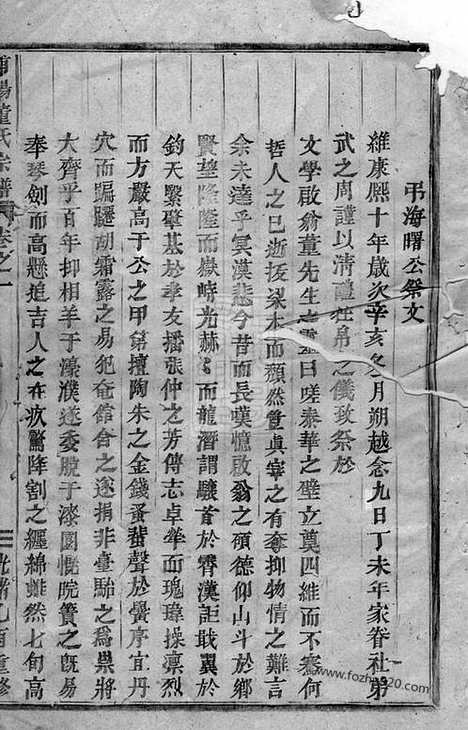 弔海曙公祭文
維康熙十年歲次辛亥冬月朔越念九日丁未年家眷社弟
武之周謹以清醴牲帛之儀致祭於
文學啟翁董先生之靈曰嗟泰華之壁立奠四維而不騫何
哲人之已逝拔梁木而頹然豈真宰之有奪抑物情之難言
余未達乎冥漠悲今昔而長嘆憶啟翁之碩德仰山斗於鄉
賢望隆隆而嶽峙光赫赫而龍潛謂驤首於霄漢詎戢翼於
鈞天繄肇基於孝友播張仲之芳傳志卓犖而瑰瑋操凜烈
而方嚴高于公之甲第擅陶朱之金錢蚤蜚聲於黌序宜丹
穴而翩躚胡霜露之易犯奄館舍之遂捐非臺駘之為祟將
大齊乎百年抑相羊于濠濮遂委脫于漆園慨晥簀之旣易
奉琴劍而高懸追吉人之在疚驚降割之纏綿雖然七旬高
陽董氏宗譜 卷之一
光緒乙酉重修
www.fozhu920.com